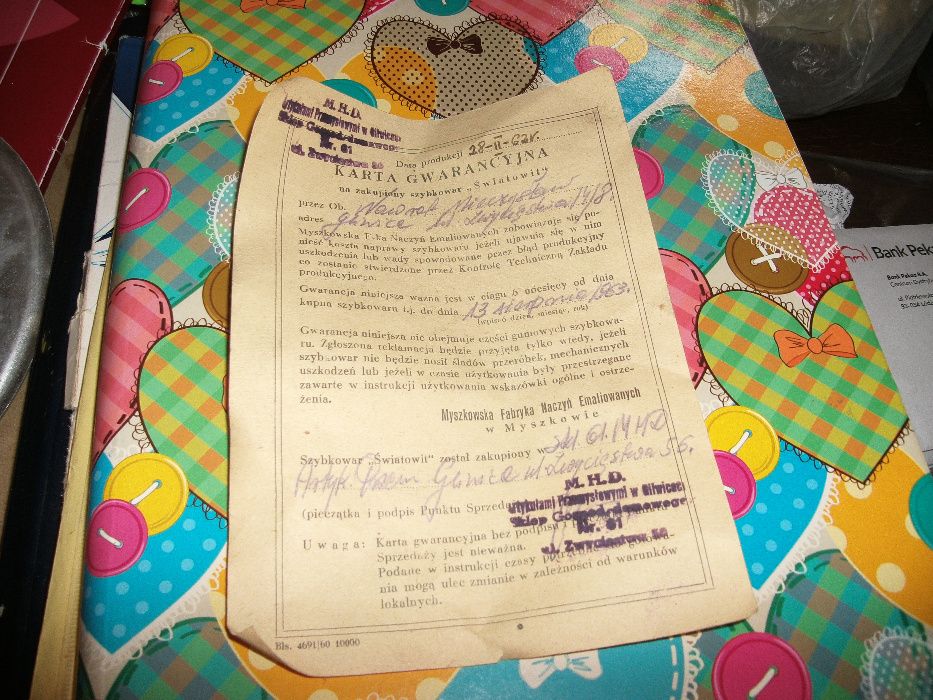 M. H. D.
Artykułami Przemysłowymi w Gliwicac
Sklep Gospod.-domowego
Nr. 61
ul. Zwycięstwa 56
Data produkcji 28-II-62r.
KARTA GWARANCYJNA
na zakupiony szybkowar „Światowit”
przez Ob. Nawrot
adres Gliwice ul. Zwycięstwa 14/8
Myszkowska F-ka Naczyń Emaliowanych zobowiązuje się po-
nieść koszta naprawy szybkowaru jeżeli ujawnią się w nim
uszkodzenia lub wady spowodowane przez błąd produkcyjny
co zostanie stwierdzone przez Kontrolę Techniczną Zakładu
produkcyjnego.
Gwarancja niniejsza ważna jest w ciągu 6 miesięcy od dnia
kupna szybkowaru t.j. do dnia 13 sierpnia 1963.
(wpisać dzień, miesiąc, rok)
Gwarancja niniejsza nie obejmuje części gumowych szybkowa-
ru. Zgłoszona reklamacja będzie przyjęta tylko wtedy, jeżeli
szybkowar nie będzie nosił śladów przeróbek, mechanicznych
uszkodzeń lub jeżeli w czasie użytkowania były przestrzegane
zawarte w instrukcji użytkowania wskazówki ogólne i ostrze-
żenia.
Myszkowska Fabryka Naczyń Emaliowanych
w Myszkowie
Szybkowar „Światowit” został zakupiony w 61 MHD
Artyk. Przem Gliwice ul. Zwycięstwa 56.
(pieczątka i podpis Punktu Sprzed
M. H. D.
Artykułami Przemysłowymi w Gliwicac
Sklep Gospod.-domowego
Nr. 61
ul. Zwycięstwa 56
Uwaga: Karta gwarancyjna bez podpisu i
Sprzedaży jest nieważna.
Podane w instrukcji czasy
nia mogą ulec zmianie w zależności od warunków
lokalnych.
Bls. 4691/60 10000
Bank Pekao
Bank Pekao S.A.